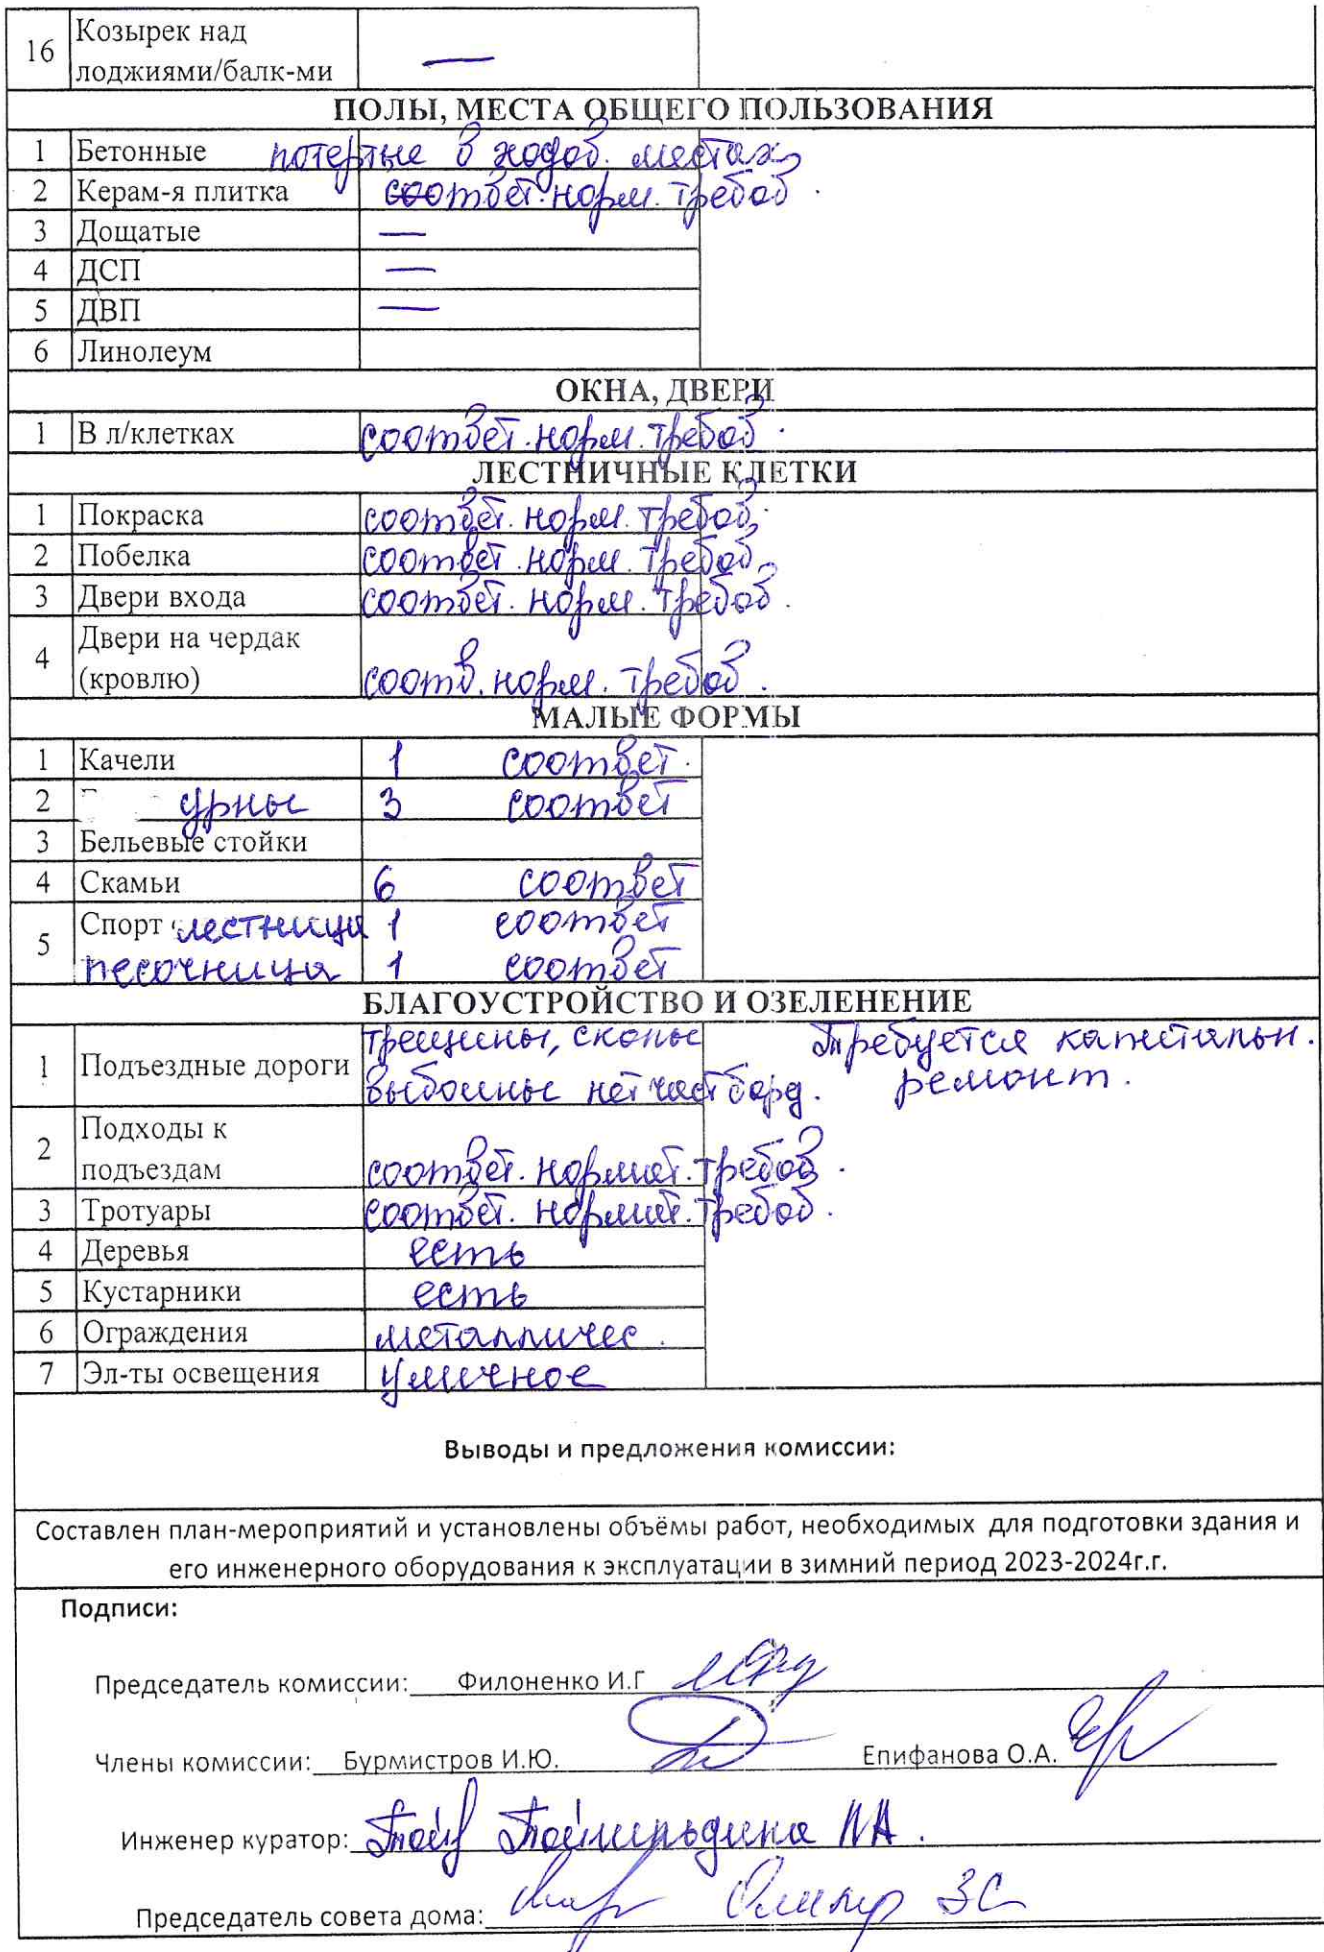 16 Козырек над
лоджиями/балк-ми —
ПОЛЫ, МЕСТА ОБЩЕГО ПОЛЬЗОВАНИЯ
1 Бетонные потертые в ходов. местах
2 Керам-я плитка соответ. норм. требов.
3 Дощатые —
4 ДСП —
5 ДВП —
6 Линолеум
ОКНА, ДВЕРИ
1 В л/клетках соответ. норм. требов.
ЛЕСТНИЧНЫЕ КЛЕТКИ
1 Покраска соответ. норм. требов.
2 Побелка соответ. норм. требов.
3 Двери входа соответ. норм. требов.
4 Двери на чердак
(кровлю) соотв. норм. требов.
МАЛЫЕ ФОРМЫ
1 Качели 1 соответ.
2 урны 3 соответ
3 Бельевые стойки
4 Скамьи 6 соответ
5 Спорт лестница 1 соответ
песочница 1 соответ
БЛАГОУСТРОЙСТВО И ОЗЕЛЕНЕНИЕ
1 Подъездные дороги трещины, сколы Требуется капитальн.
выбоины нет част борд. ремонт.
2 Подходы к
подъездам соответ. нормат. требов.
3 Тротуары соответ. нормат. требов.
4 Деревья есть
5 Кустарники есть
6 Ограждения металличес.
7 Эл-ты освещения уличное
Выводы и предложения комиссии:
Составлен план-мероприятий и установлены объёмы работ, необходимых для подготовки здания и
его инженерного оборудования к эксплуатации в зимний период 2023-2024г.г.
Подписи:
Председатель комиссии: Филоненко И.Г
Члены комиссии: Бурмистров И.Ю. Епифанова О.А.
Инженер куратор:
Председатель совета дома: ЗС